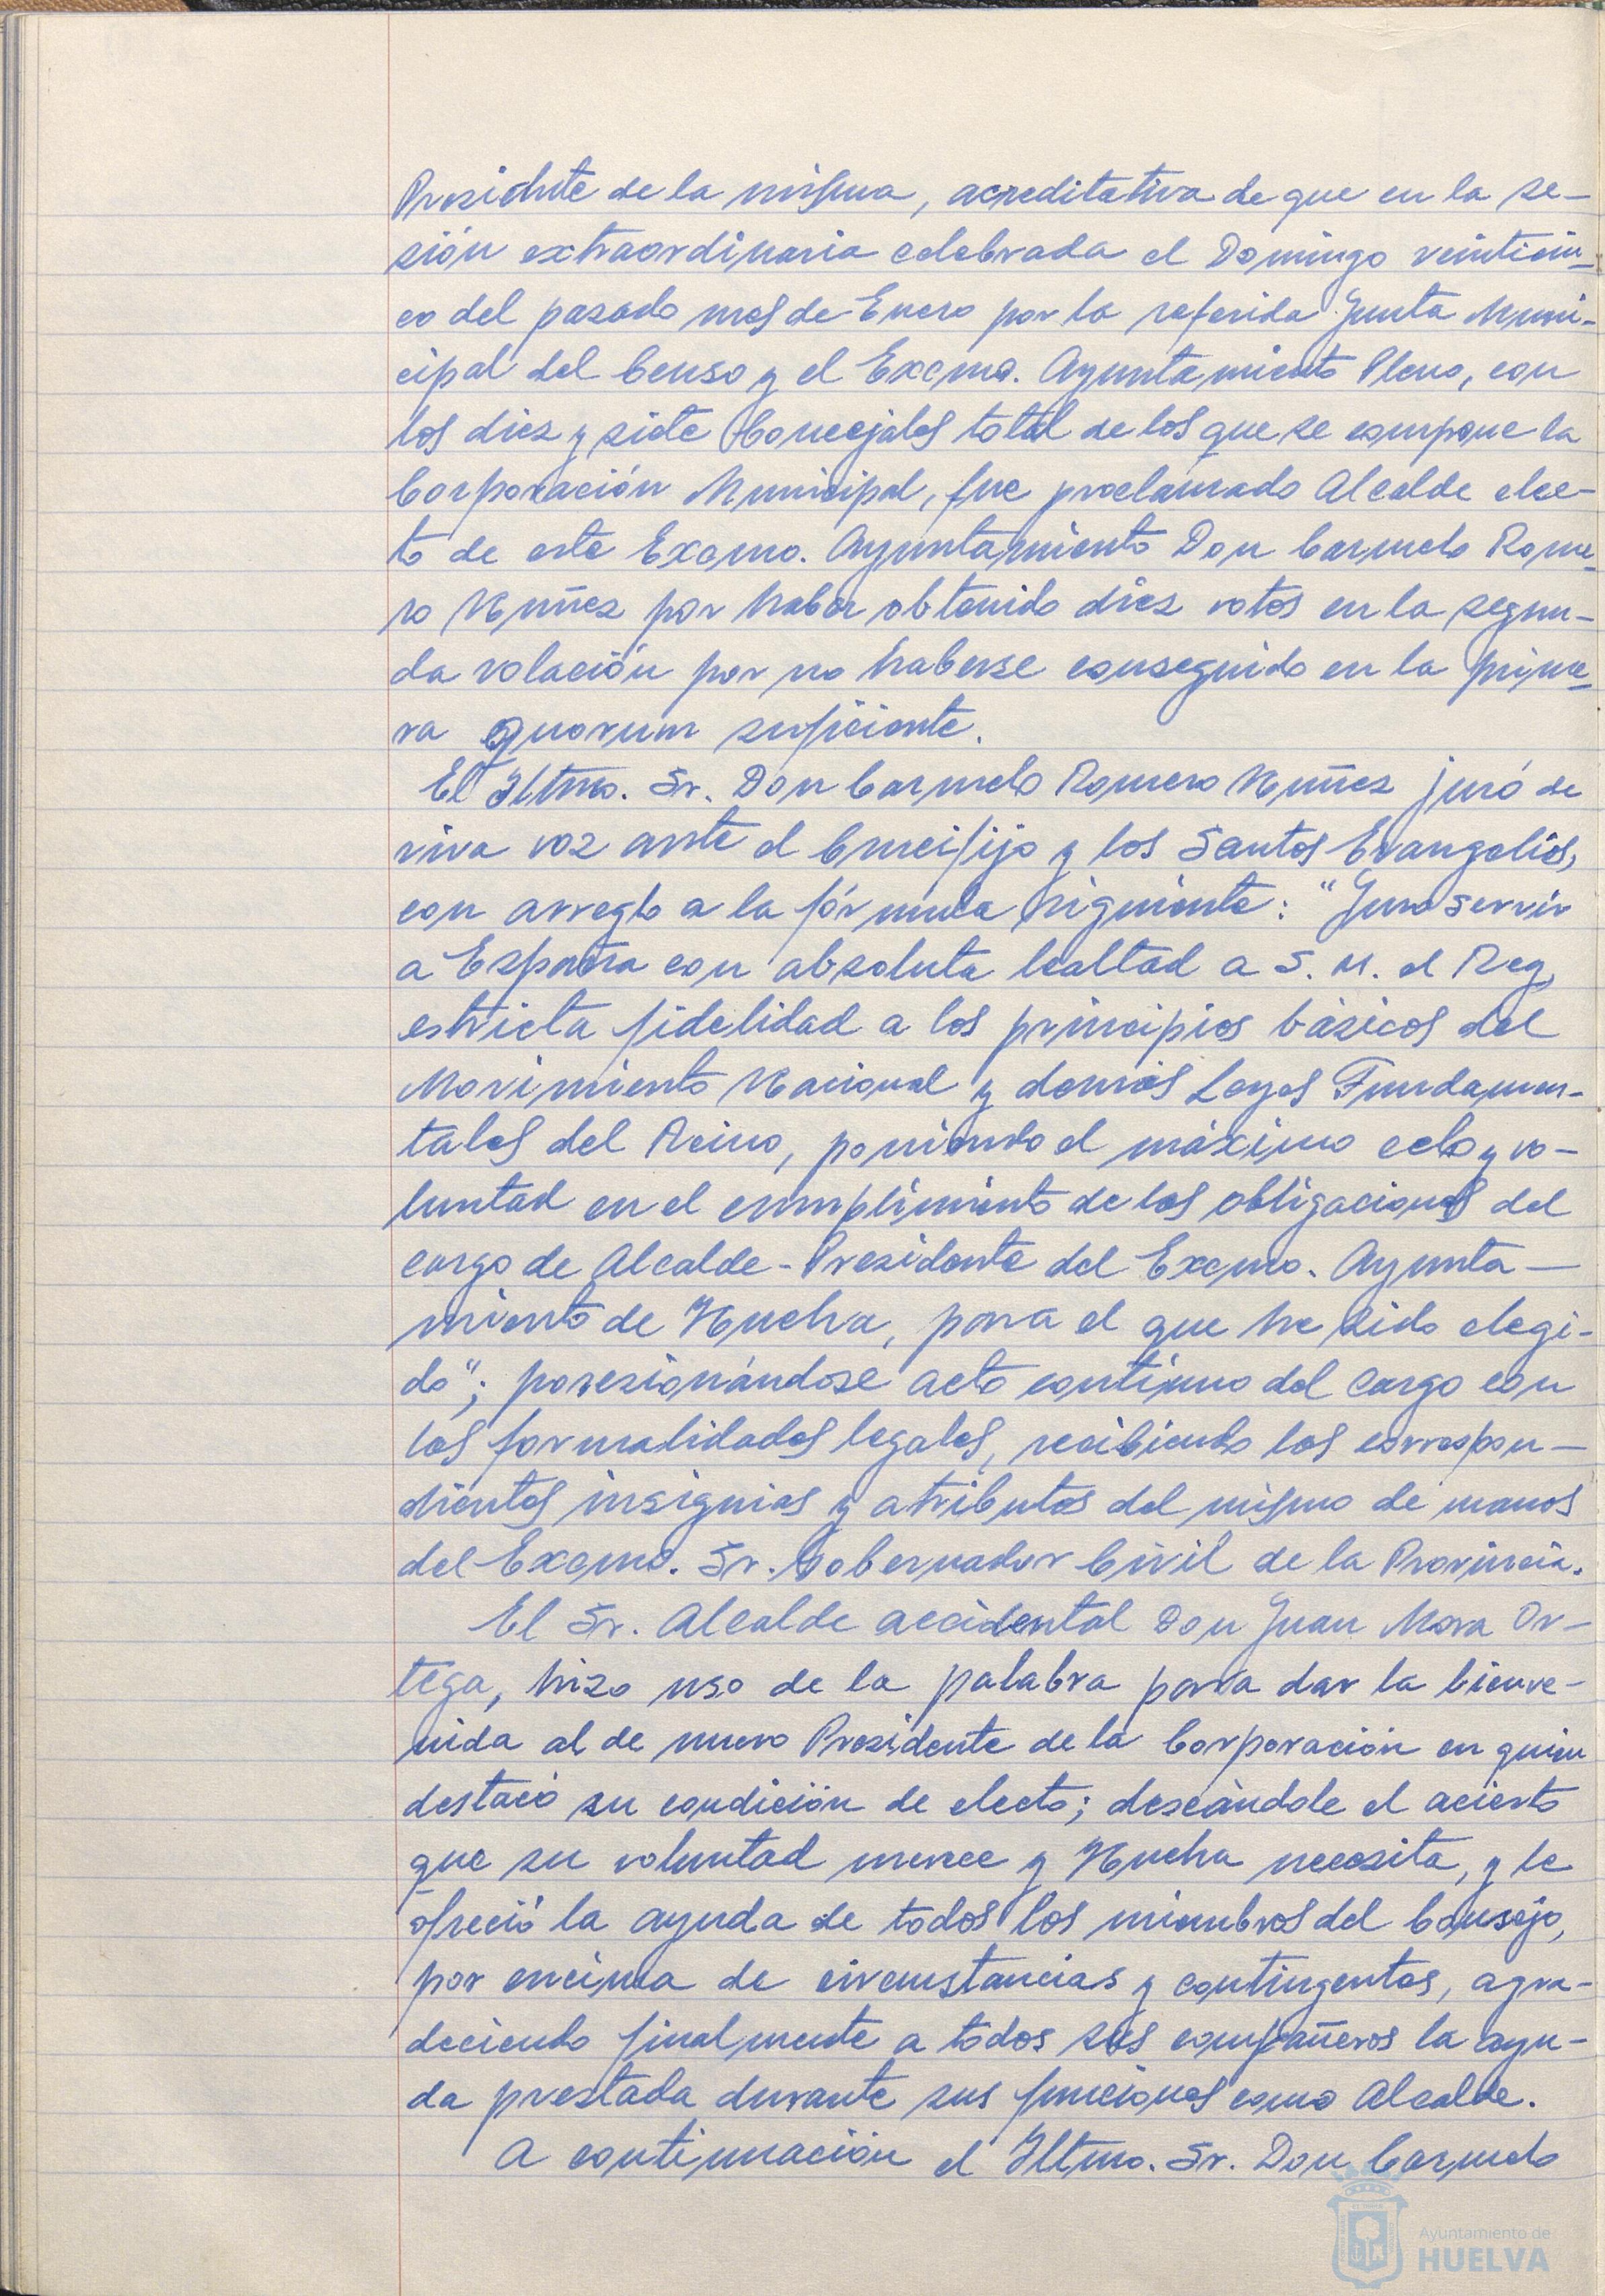 Presidente de la misma, acreditativa de que en la se-
sión extraordinaria celebrada el Domingo veinticin-
co del pasado mes de Enero por la referida Junta Muni-
cipal del Censo y el Excmo. Ayuntamiento Pleno, con
los diez y siete Concejales total de los que se compone la
Corporación Municipal, fue proclamado Alcalde elec-
to de este Excmo. Ayuntamiento Don Carmelo Rome-
ro Núñez por haber obtenido diez votos en la segun-
da votación por no haberse conseguido en la prime-
ra quorum suficiente.
El Iltmo. Sr. Don Carmelo Romero Núñez juró de
viva voz ante el Crucifijo y los Santos Evangelios,
con arreglo a la fórmula siguiente: "Juro servir
a España con absoluta lealtad a S. M. el Rey,
estricta fidelidad a los principios básicos del
Movimiento Nacional y demás Leyes Fundamen-
tales del Reino, poniendo el máximo celo y vo-
luntad en el cumplimiento de las obligaciones del
cargo de Alcalde-Presidente del Excmo. Ayunta-
miento de Huelva, para el que he sido elegi-
do"; posesionándose acto continuo del cargo con
las formalidades legales, recibiendo las correspon-
dientes insignias y atributos del mismo de manos
del Excmo. Sr. Gobernador Civil de la Provincia.
El Sr. Alcalde accidental Don Juan Mora Or-
tega, hizo uso de la palabra para dar la bienve-
nida al de nuevo Presidente de la Corporación en quien
destacó su condición de electo; deseándole el acierto
que su voluntad merece y Huelva necesita, y le
ofreció la ayuda de todos los miembros del Consejo,
por encima de circunstancias y contingentes, agra-
deciendo finalmente a todos sus compañeros la ayu-
da prestada durante sus funciones como Alcalde.
A continuación el Iltmo. Sr. Don Carmelo
Ayuntamiento de
HUELVA